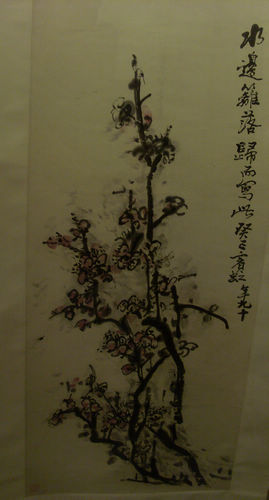 水邊籬落歸而寫此癸巳賓虹年九十